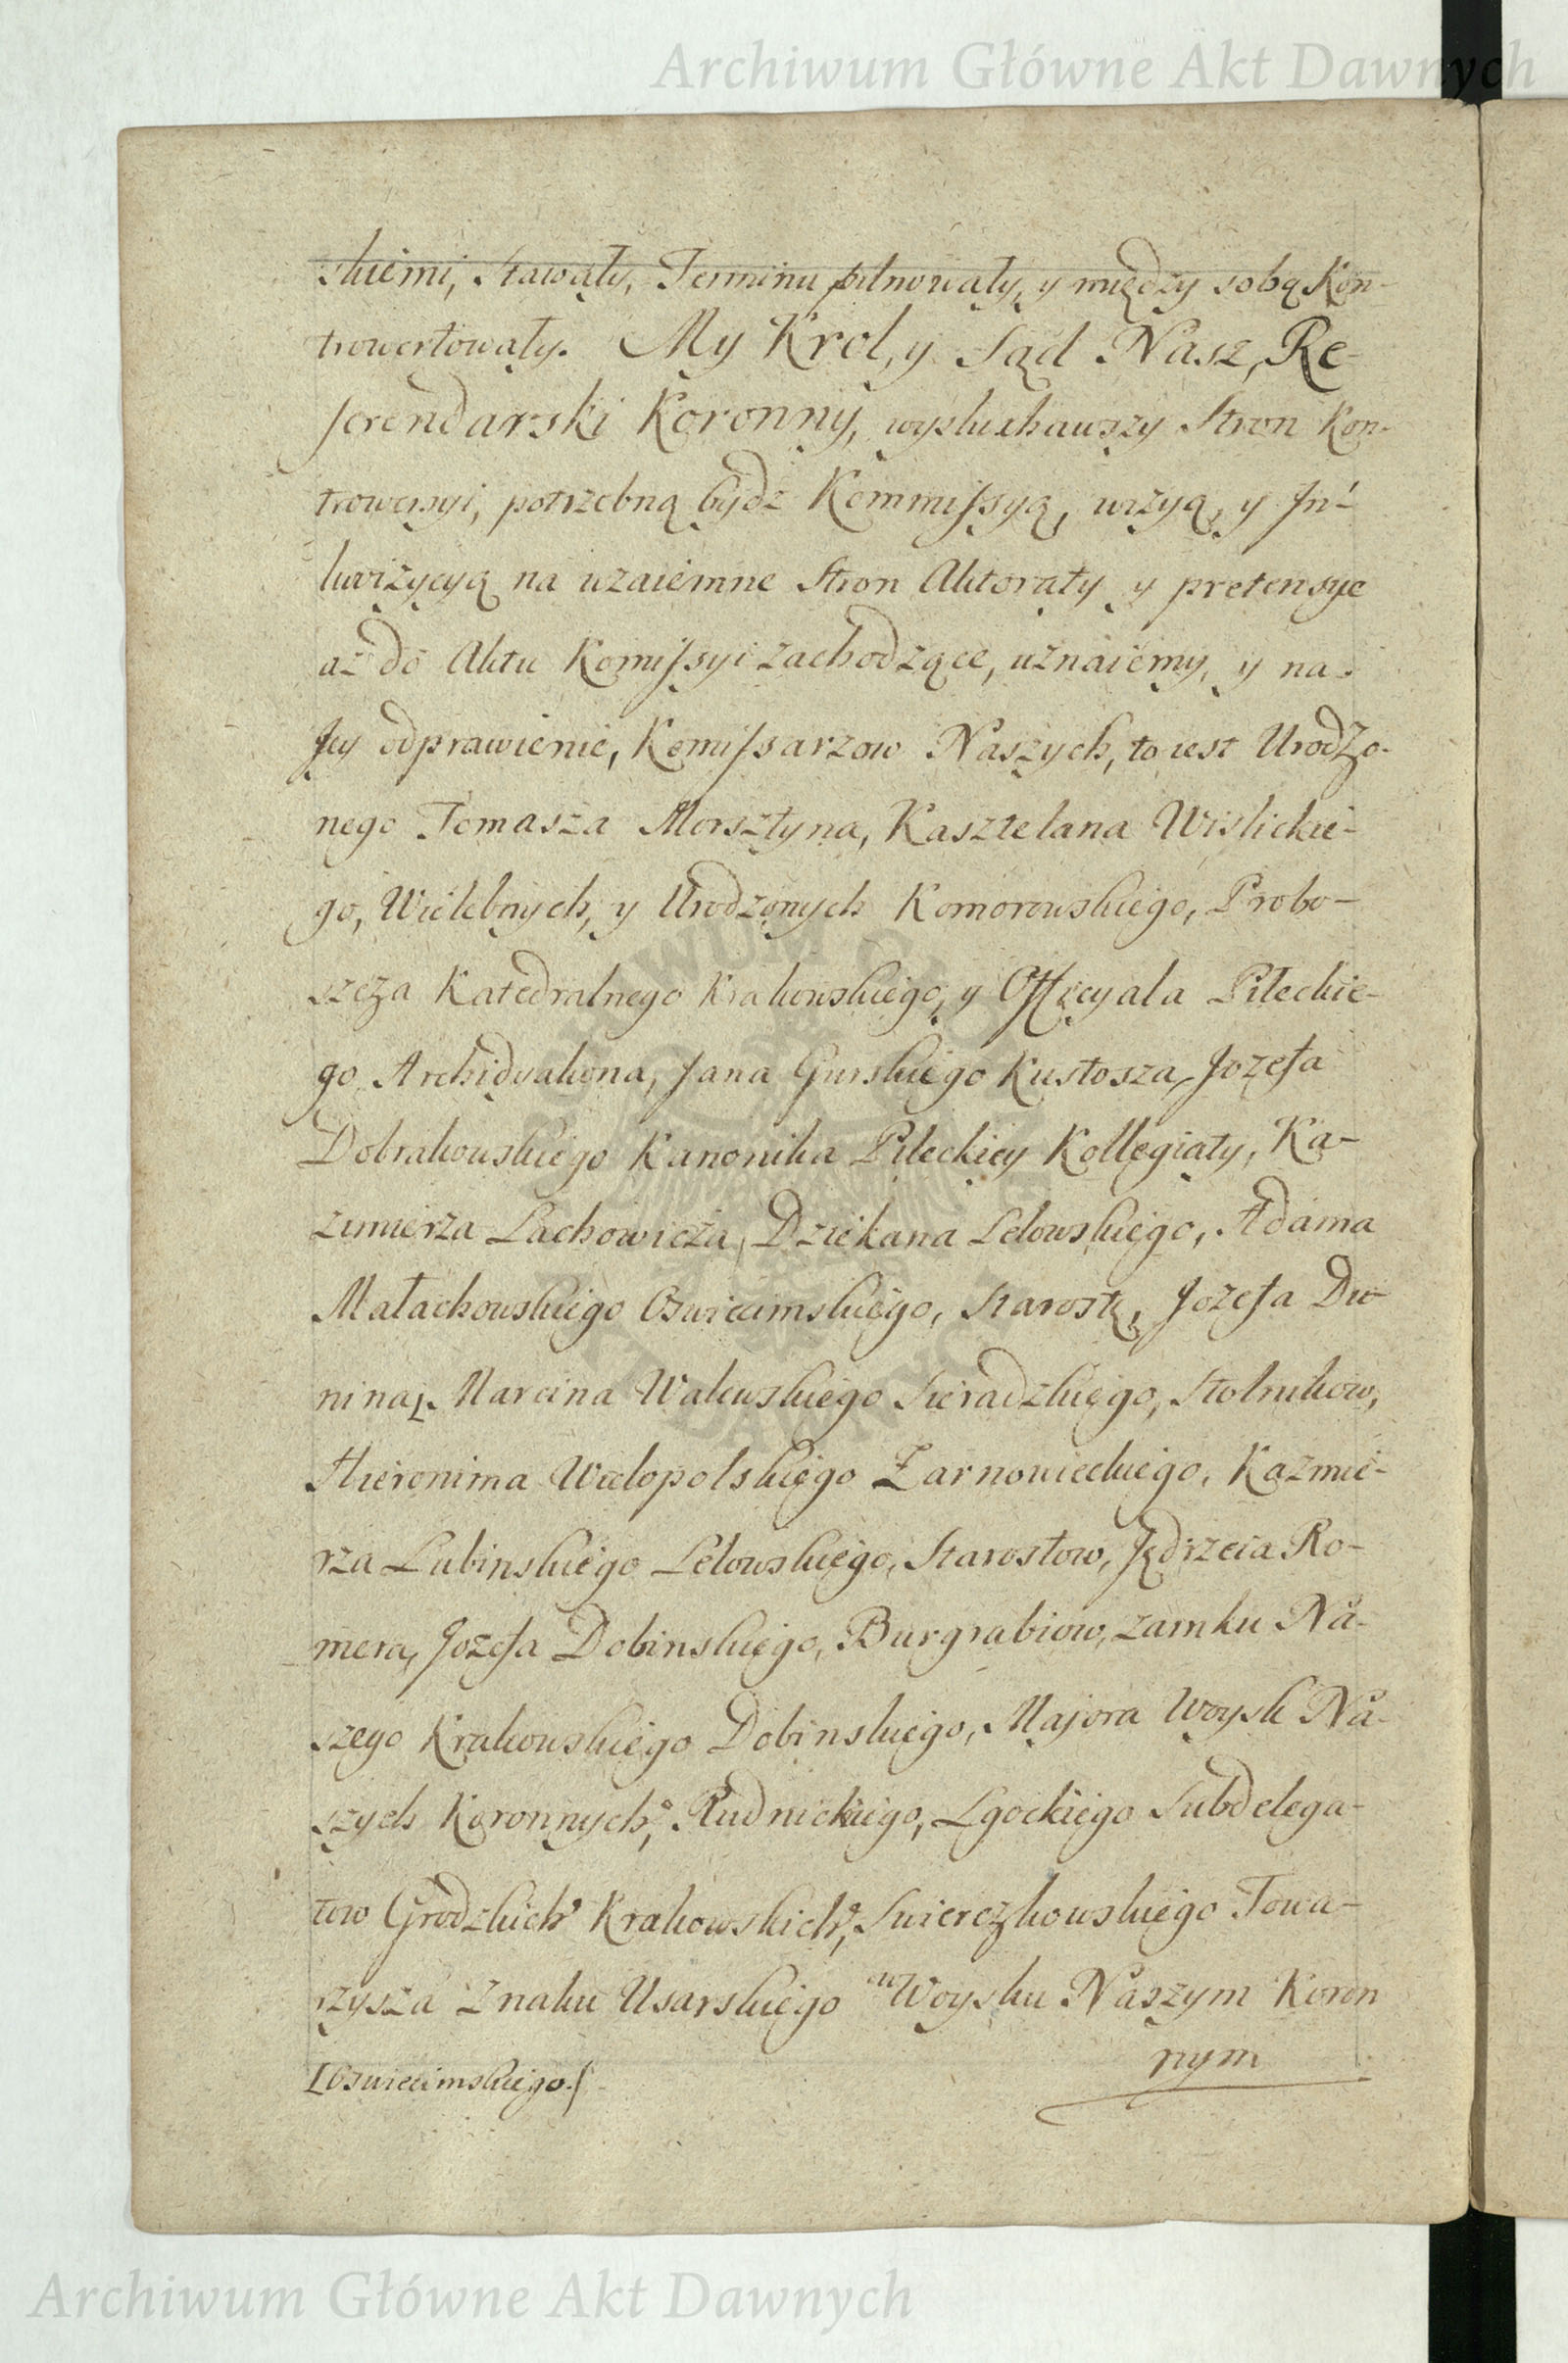 Archiwum Główne Akt Dawnych
skiemi, stawały, Terminu pilnowały, y między sobą Kon-
trowertowały. My Krol, y Sąd Nasz, Re-
ferendarski Koronny, wysłuchawszy Stron Kon-
trowersyi, potrzebną bydz Kommissyą, wizyą, y In-
kwizycyą na wzaiemne Stron Aktoraty y pretensye
aż do Aktu Komissyi zachodzące, uznaiemy, y na
Jey odprawienie, Komissarzow Naszych, to iest Urodzo-
nego Tomasza Morsztyna, Kasztelana Wislickie-
go, Wielebnych, y Urodzonych Komorowskiego, Probo-
szcza Katedralnego Krakowskiego, y Officyala Pileckie-
go Archidyakona, Jana Gurskiego Kustosza, Jozefa
Dobrakowskiego Kanonika Pileckiey Kollegiaty, Ka-
zimierza Lachowicza, Dziekana Lelowskiego, Adama
Małachowskiego Oswiecimskiego, Starostę, Jozefa Du-
nina, Marcina Walewskiego Sieradzkiego, Stolnikow,
Hieronima Wielopolskiego Żarnowieckiego, Kazmie-
rza Łubinskiego Lelowskiego, Starostow, Jędrzeia Ro-
mera, Jozefa Dobinskiego, Burgrabiow, zamku Na-
szego Krakowskiego Dobinskiego, Majora Woysk Na-
szych Koronnych, Rudnickiego, Lgockiego Subdelega-
tow Grodzkich Krakowskich, Swierczkowskiego Towa-
rzysza Znaku Usarskiego w Woysku Naszym Koron
nym
[Oswiecimskiego.]
Archiwum Główne Akt Dawnych